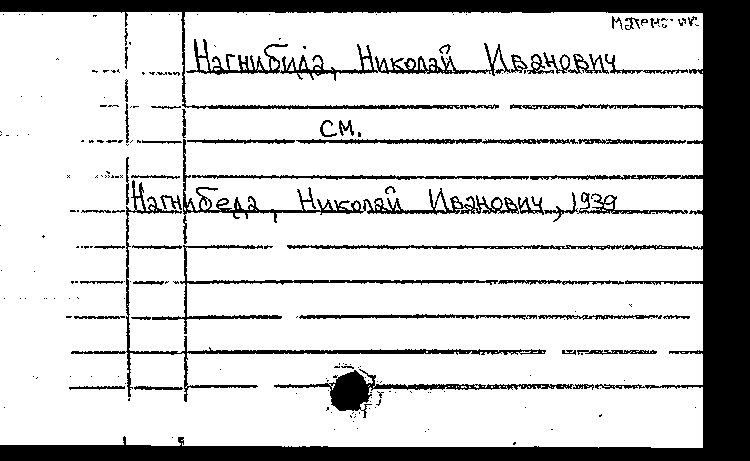 Нагнибида, Николай Иванович
см.
Нагнибеда, Николай Иванович, 1939